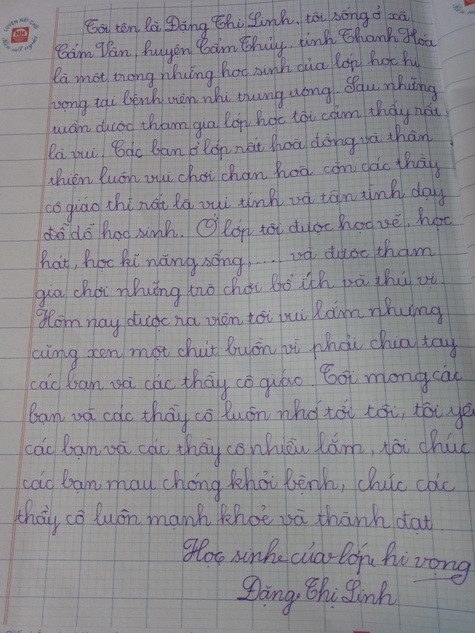 Tôi tên là Đặng Thị Linh, tôi sống ở xã
Cẩm Vân, huyện Cẩm Thủy, tỉnh Thanh Hóa
là một trong những học sinh của lớp học hi
vọng tại bệnh viện nhi trung ương. Sau những
tuần được tham gia lớp học tôi cảm thấy rất
là vui. Các bạn ở lớp rất hoà đồng và thân
thiện luôn vui chơi chan hoà còn các thầy
cô giáo thì rất là vui tính và tận tình dạy
dỗ học sinh. Ở lớp tôi được học vẽ, học
hát, học kĩ năng sống, .... và được tham
gia chơi những trò chơi bổ ích và thú vị.
Hôm nay được ra viện tôi vui lắm nhưng
cũng xen một chút buồn vì phải chia tay
các bạn và các thầy cô giáo. Tôi mong các
bạn và các thầy cô luôn nhớ tới tôi, tôi yê
các bạn và các thầy cô nhiều lắm, tôi chúc
các bạn mau chóng khỏi bệnh, chúc các
thầy cô luôn mạnh khoẻ và thành đạt
Học sinh của lớp hi vọng
Đặng Thị Linh